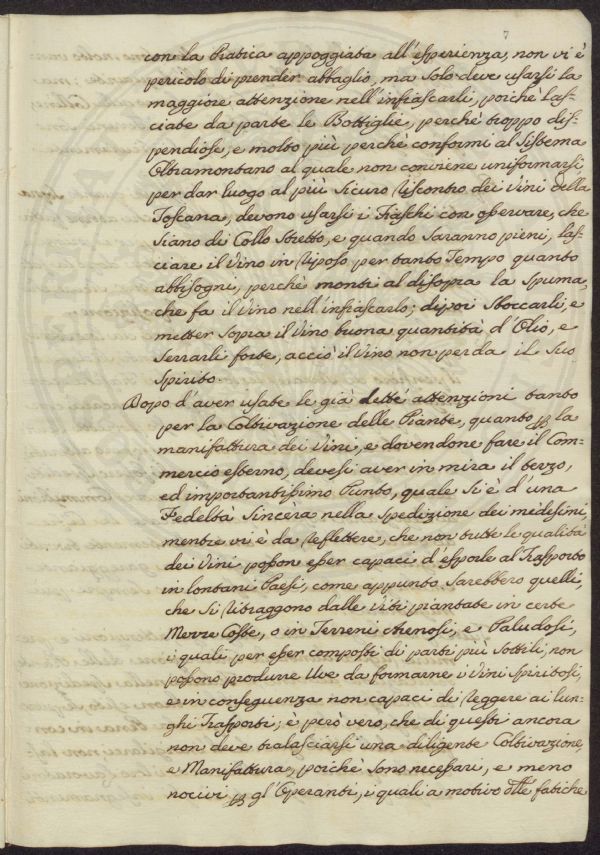 7
con la Pratica appoggiata all'esperienza, non vi è
pericolo di prender abbaglio, ma solo deve usarsi la
maggiore attenzione nell'infiascarli, poichè las-
ciate da parte le Bottiglie, perchè troppo dis-
pendiose, e molto più perchè conformi al Sistema
Oltramontano al quale non conviene uniformarsi
per dar luogo al più sicuro riscontro dei Vini della
Toscana, devono usarsi i Fiaschi con osservare, che
siano di Collo Stretto, e quando saranno pieni, las-
ciare il Vino in riposo per tanto Tempo quanto
abbisogni, perchè monti al disopra la Spuma,
che fa il Vino nell'infiascarlo; dipoi Sboccarli, e
metter sopra il Vino buona quantità d'Olio, e
serrarli forte, acciò il Vino non perda il suo
Spirito.
Dopo d'aver usate le già dette attenzioni tanto
per la Coltivazione delle Piante, quanto p la
manifattura dei Vini, e dovendone fare il Com-
mercio esterno, devesi aver in mira il terzo,
ed importantissimo Punto, quale si è d'una
Fedeltà Sincèra nella Spedizione dei medesimi,
mentre vi è da reflettere, che non tutte le qualità
dei Vini posson esser capaci d'esporle al Trasporto
in lontani Paesi, come appunto sarebbero quelli,
che si ritraggono dalle Viti piantate in certe
Mezze Coste, o in Terreni Arenosi, e Paludosi,
i quali per esser composti di parti più Sottili, non
possono produrre Uve da formarne i Vini Spiritosi,
e in conseguenza non capaci di reggere ai lun-
ghi Trasporti; è però vero, che di questi ancora
non deve tralasciarsi una diligente Coltivazione,
e Manifattura, poichè sono necessari, e meno
nocivi p gl'Operanti, i quali a motivo dlle fatiche